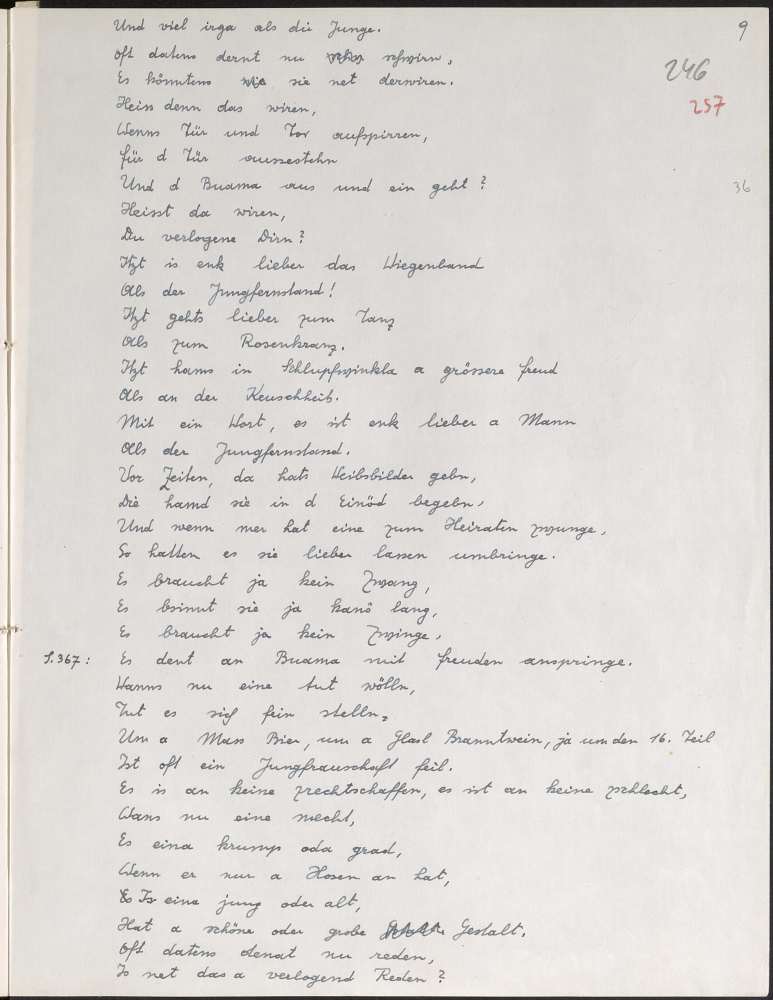 9
Und viel irga als die Junge.
Oft datens dernt nu schwirn,
246
Es könntens wie sie net derwiren.
257
Heiss denn das wiren,
Wenns Tür und Tor aufspirren,
für d Tür aussestehn
Und d Buama aus und ein geht?
36
Heisst da wiren,
Du verlogene Dirn?
Itzt is enk lieber das Wiegenband
Als der Jungfernstand!
Itzt gehts lieber zum Tanz
Als zum Rosenkranz.
Itzt hams in Schlupfwinkla a grössere freud
Als an der Keuschheit.
Mit ein Wort, es ist enk lieber a Mann
Als der Jungfernstand.
Vor Zeiten, da hats Weibsbilder gebn,
Die hamd sie in d Einöd begebn,
Und wenn mer hat eine zum Heiraten zwunge,
So hatten es sie lieber lassen umbringe.
Es braucht ja kein Zwang,
Es bsinnt sie ja kanö lang,
Es braucht ja kein Zwinge,
S. 367: Es dent an Buama mit freuden anspringe.
Wanns nu eine tut wölln,
Tut es sich fein stelln,
Um a Mass Bier, um a Glasl Branntwein, ja um den 16. Teil
Ist oft ein Jungfrauschaft feil.
Es is an keine zrechtschaffen, es ist an keine zschlecht,
Wans nu eine mecht,
Es eina krump oda grad,
Wenn er nur a Hosen an hat,
Is eine jung oder alt,
Hat a schöne oder grobe Gestalt.
Oft datens denat nu reden,
Is net das a verlogend Reden?